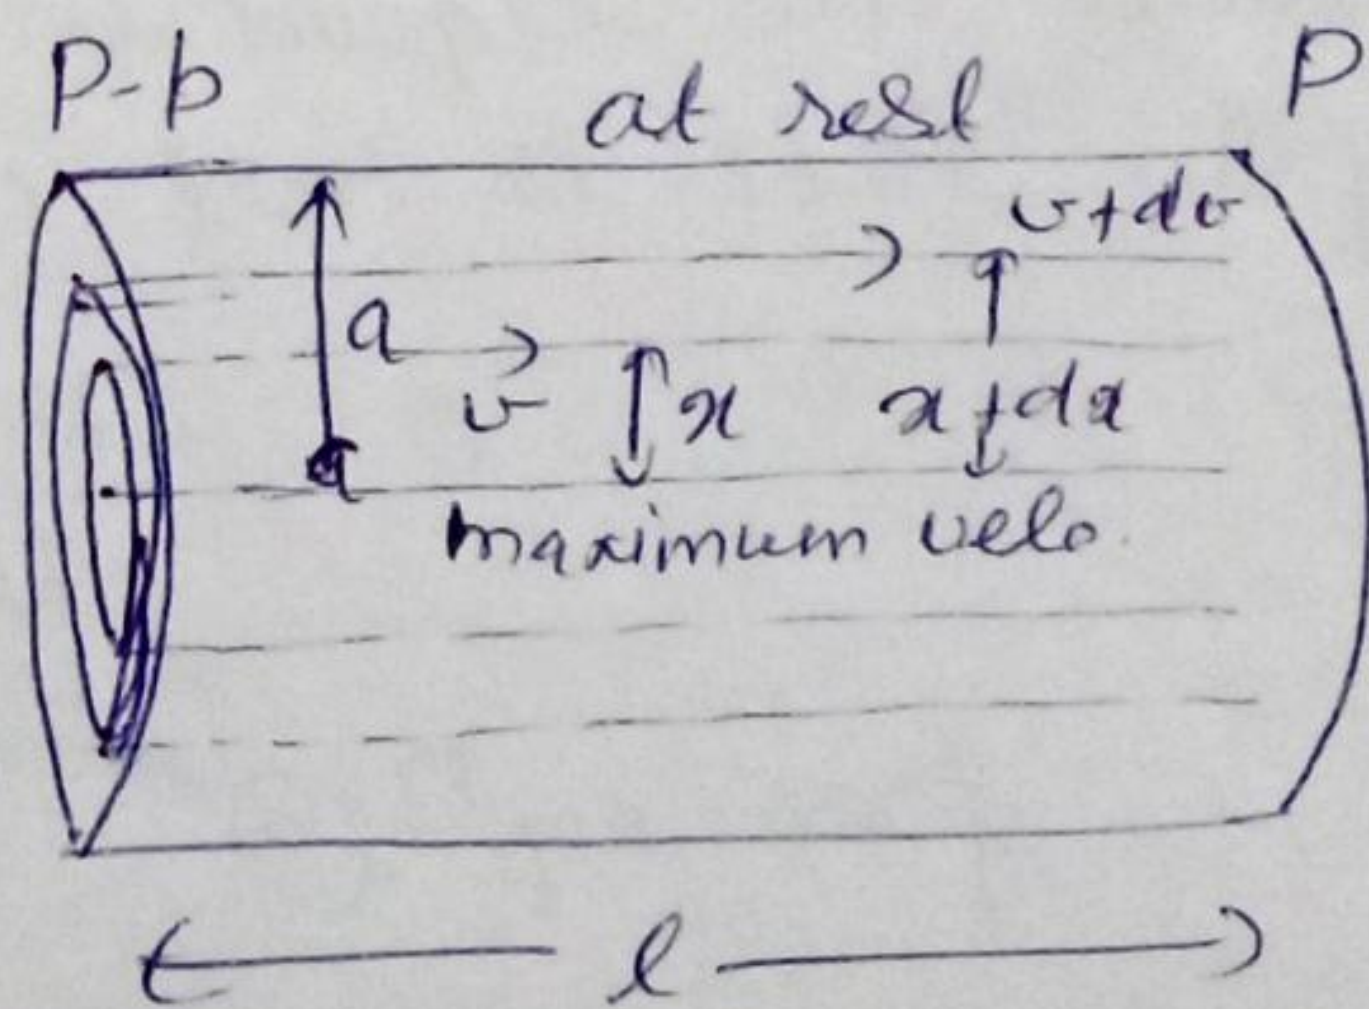 P-p at rest P
v+dv
a
v x x+dx
maximum velo.
l